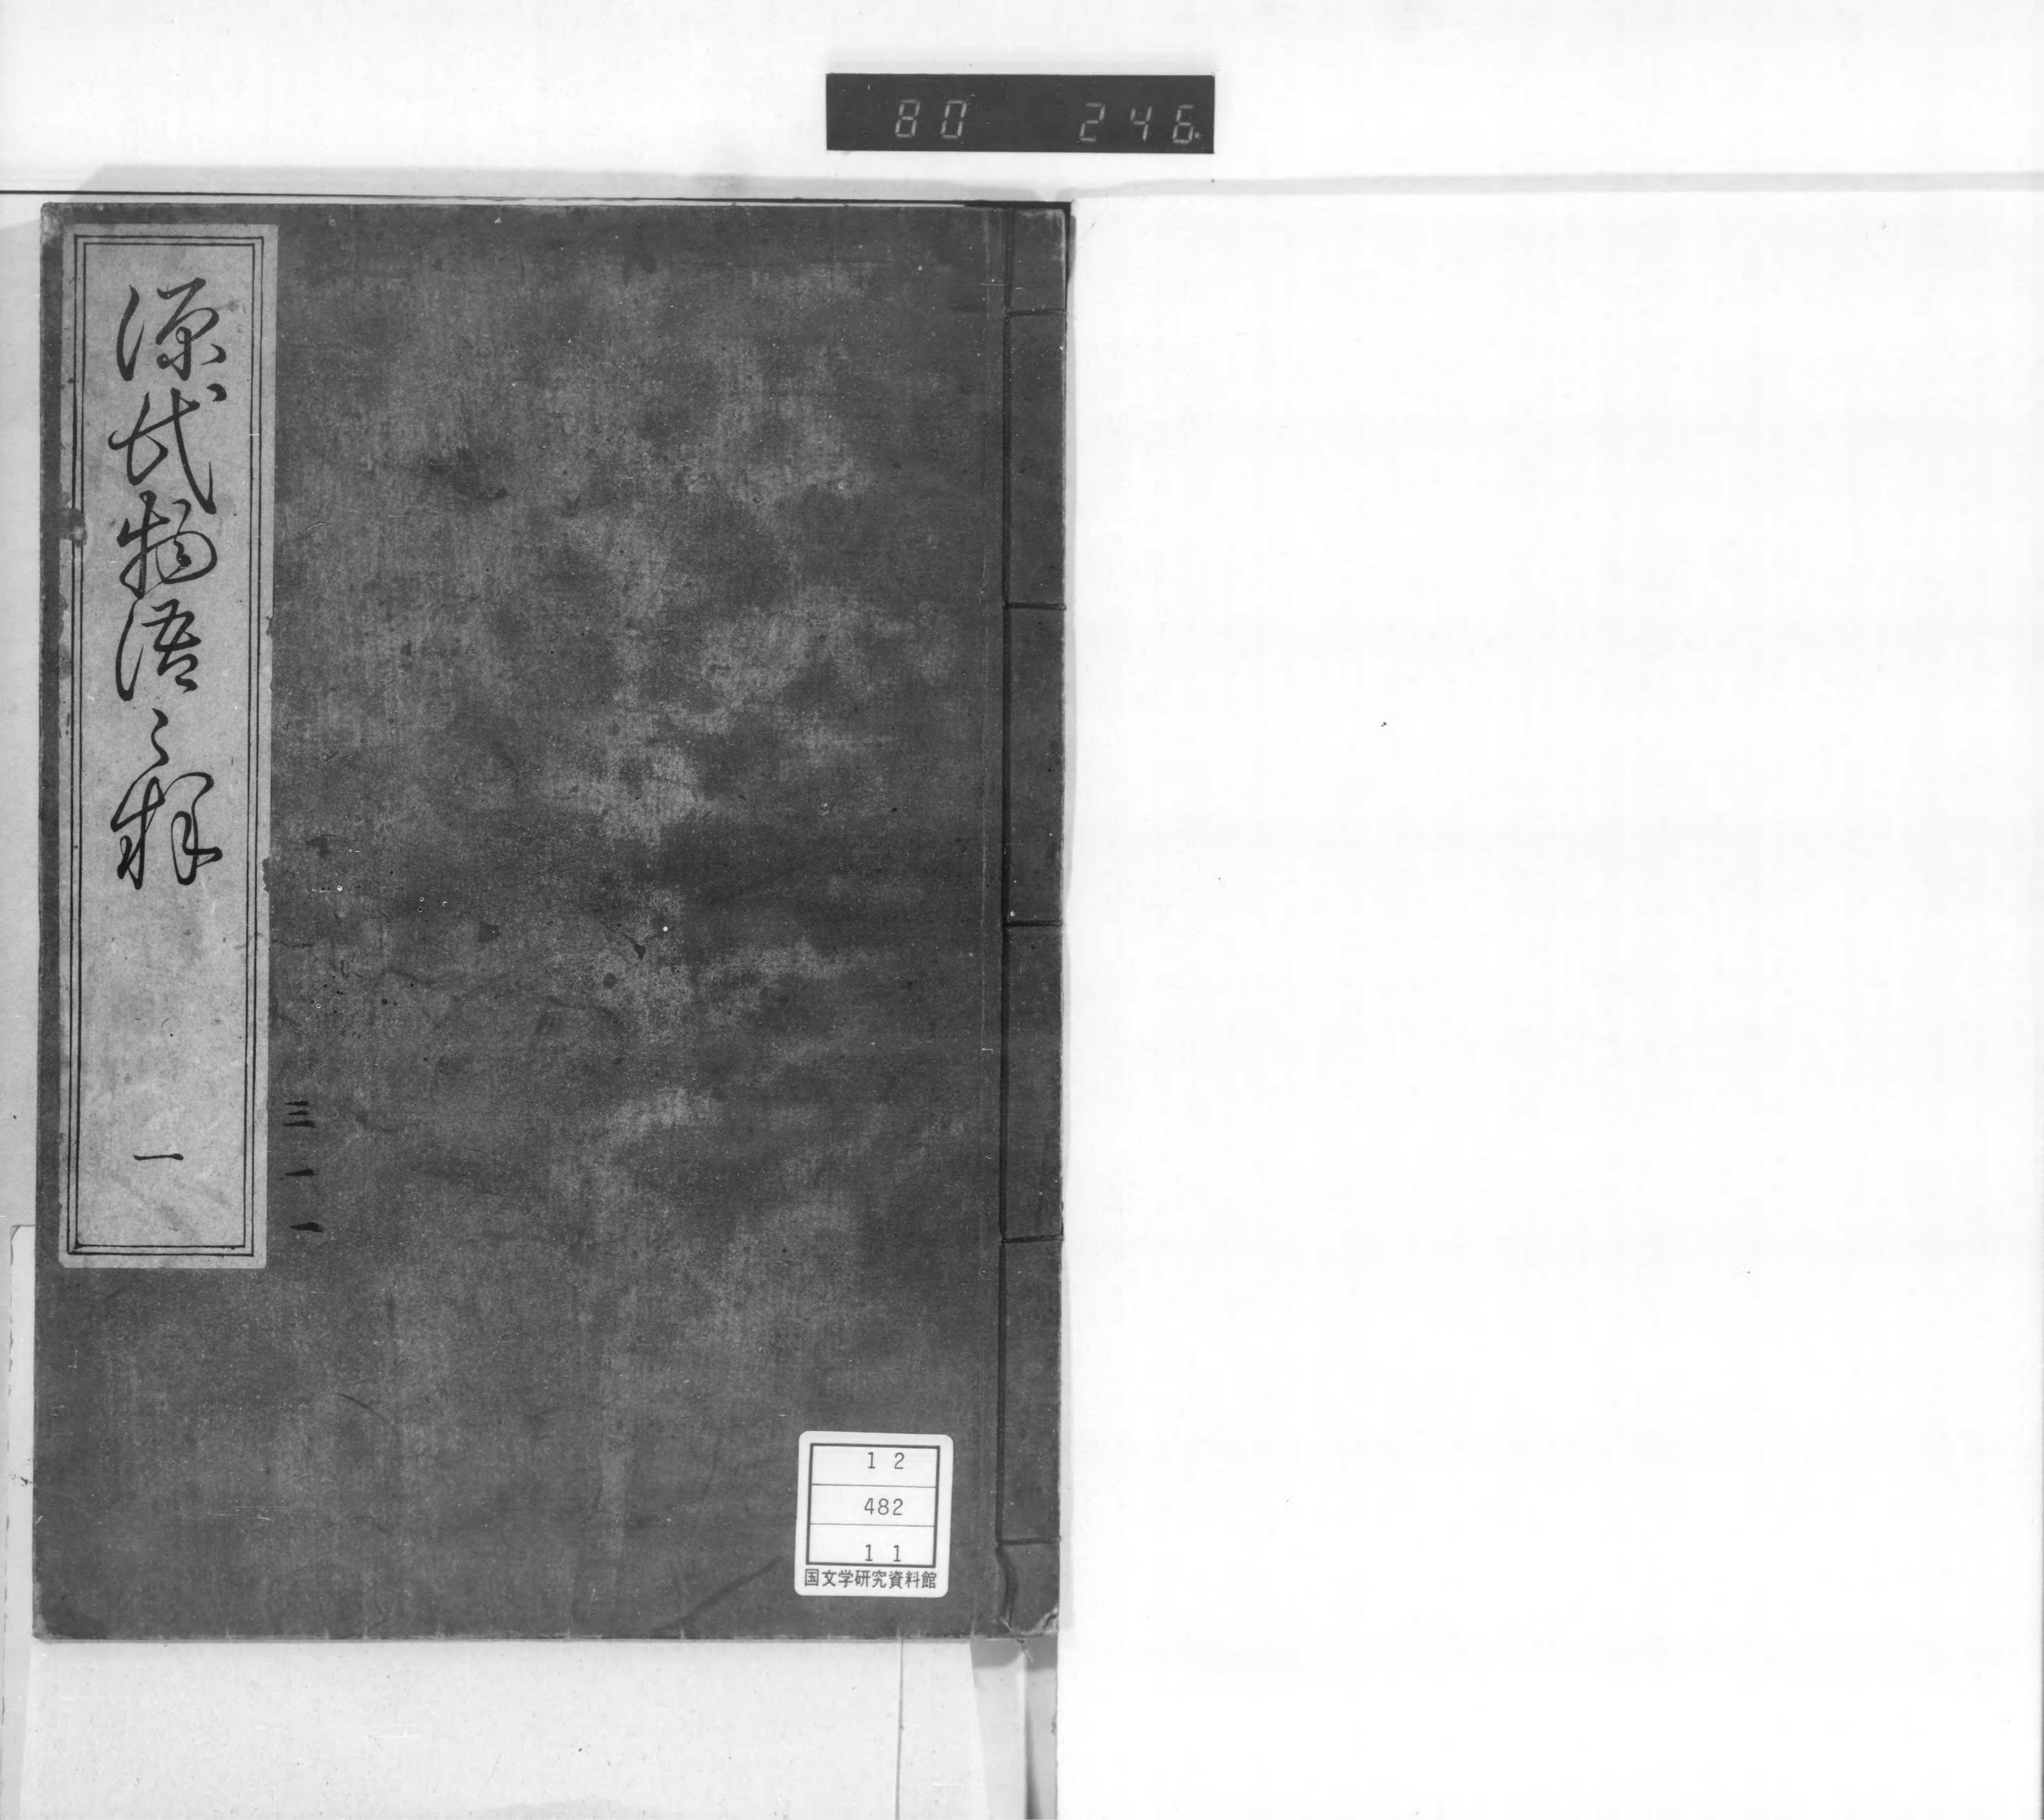 80 246
源氏物語之釋
一
三一一
12
482
11
国文学研究資料館